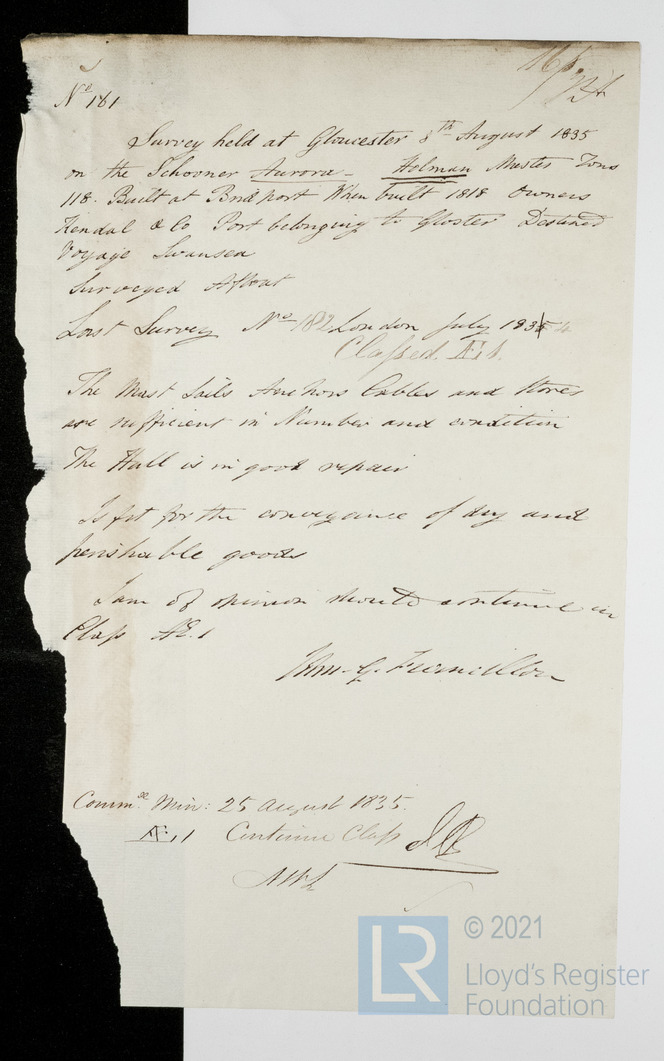 No 181
Survey held at Gloucester 8th August 1835
on the Schooner Aurora - Holman Master Tons
118. Built at Bridport When built 1818 Owners
Kendal & Co Port belonging to Gloster Destined
Voyage Swansea
Surveyed Afloat
Last Survey No 182 London July 1834
Classed Æ 1.
The Mast Sails Anchors Cables and Stores
are sufficient in Number and condition
The Hull is in good repair
Is fit for the conveyance of dry and
perishable goods
I am of opinion should continue in
Class Æ. 1
Commee Min: 25 August 1835.
Æ. 1 Continue Class
LR
© 2021
Lloyd's Register
Foundation